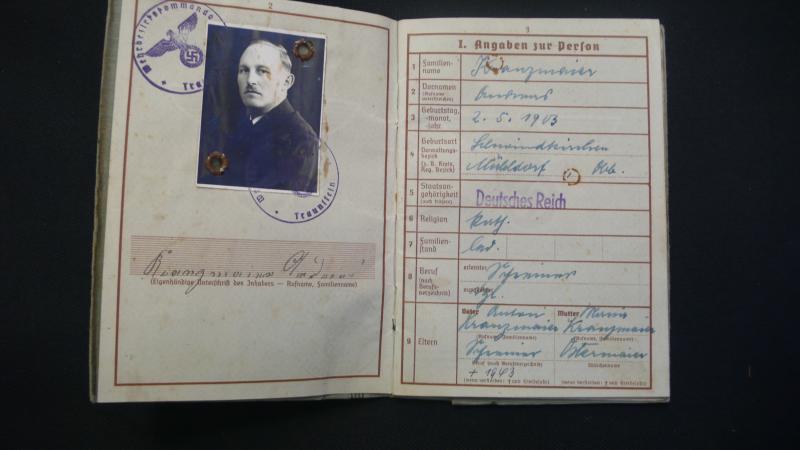 2
Wehrbezirkskommando
Traunstein
Kranzmaier Andreas
(Eigenhändige Unterschrift des Inhabers — Rufname, Familienname)
3
I. Angaben zur Person
1 Familien-
name
Kranzmaier
2 Vornamen
(Rufname
unterstreichen)
Andreas
3 Geburtstag,
-monat,
-jahr
2. 5. 1903
4 Geburtsort
Verwaltungs-
bezirk
(z. B. Kreis,
Reg. Bezirk)
Schwindkirchen
Mühldorf Obb.
5 Staatsan-
gehörigkeit
(auch frühere)
Deutsches Reich
6 Religion
kath.
7 Familien-
stand
led.
8 Beruf
(nach
Berufs-
verzeichnis)
erlernter
Schreiner
ausgeübter
9 Eltern
Vater Anton
Kranzmaier
(Rufname, Familienname)
Schreiner
Beruf (nach Berufsverzeichnis)
+ 1943
(wenn verstorben: † und Sterbejahr)
Mutter Maria
Kranzmaier
(Rufname, Familienname)
Ostermaier
Mädchenname
(wenn verstorben: † und Sterbejahr)